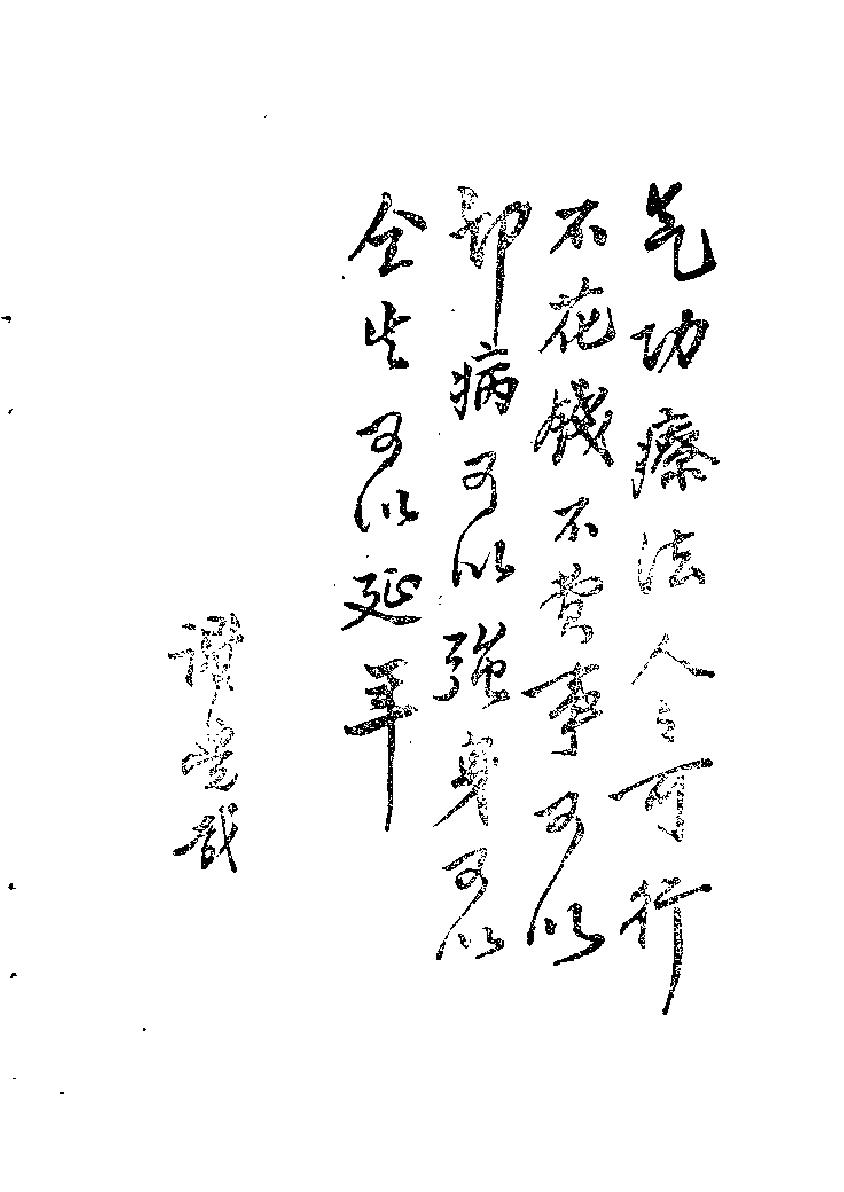 气功療法人々可行
不花钱不费事可以
却病可以强身可以
全生可以延年
谢觉哉